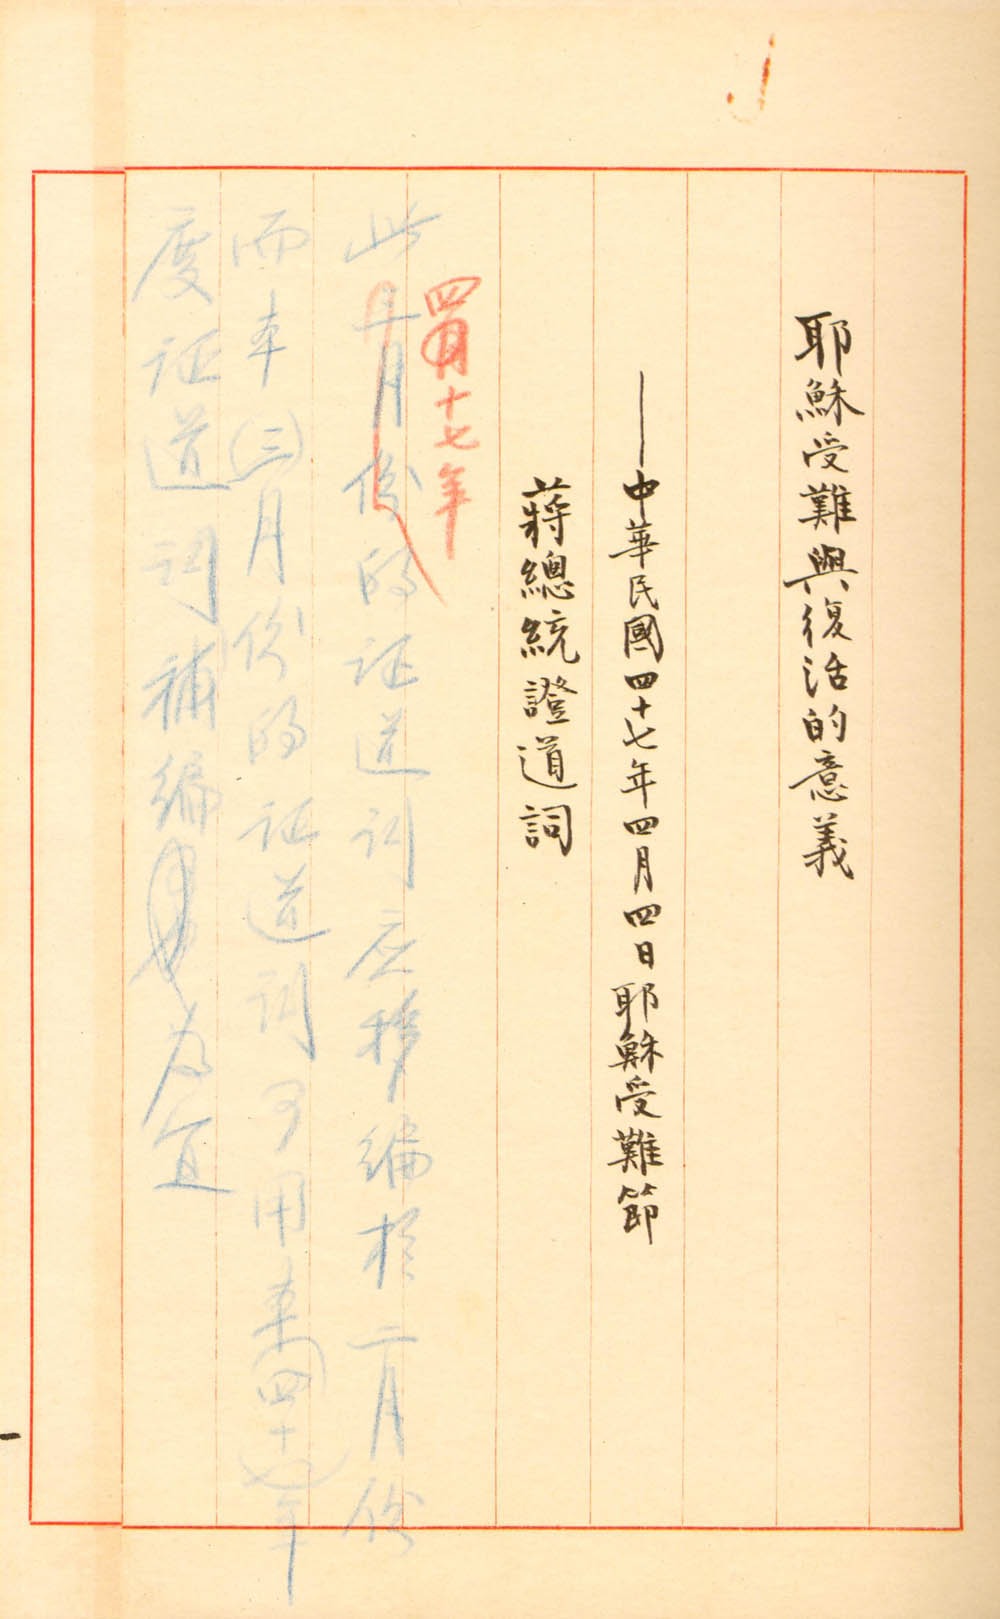 耶穌受難與復活的意義
——中華民國四十七年四月四日耶穌受難節
蔣總統證道詞
四十七年
此三月份的证道词应移编於二月份
而本(三)月份的证道词可用本(四十七)年
度证道词補编為宜